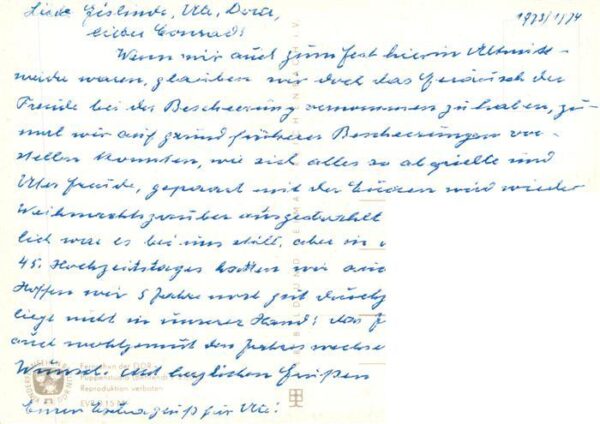 1973/1/74
Liebe Gislinde, Ute, Dora,
lieber Conrad!
Wenn wir auch zum Fest hier in Altmitt-
weida waren, glauben wir doch das Geräusch der
Freude bei der Bescheerung vernommen zu haben, zu-
mal wir auf grund früherer Bescheerungen vor-
stellen konnten, wie sich alles so abspielte und
Utes Freude, gepaart mit der wird wieder
Weihnachtszauber ausgestrahlt
lich war es bei uns still, aber in
45. Hochzeitstages hatten wir auc
Hoffen wir 5 Jahre noch gut durch
liegt nicht in unserer Hand! das
auch wohlgemut den Jahreswechse
Wünsche. Mit herzlichen Grüßen
Einen Extragruß für Ute!
Fernsehen der DDR
Reproduktion verboten